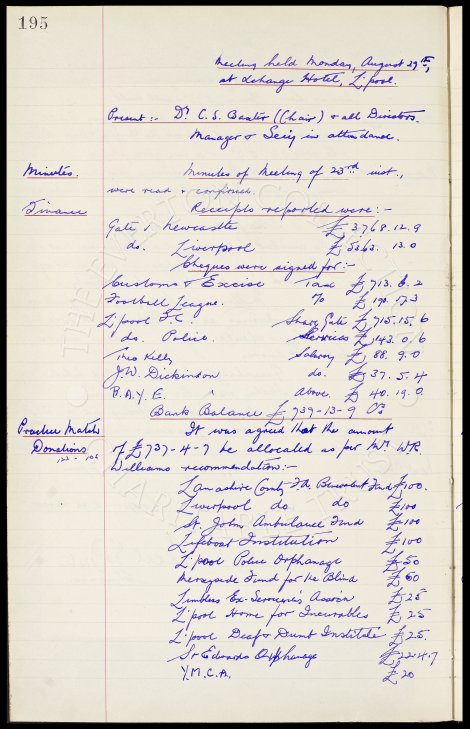 195
Meeting held Monday, August 29th,
at Exchange Hotel, L'pool.
Present :- Dr C. S. Baxter (Chair) & all Directors.
Manager & Secy in attendance.
Minutes. Minutes of Meeting of 23rd inst.,
were read & confirmed.
Finance Receipts reported were :-
Gate v. Newcastle £3768. 12. 9
do. Liverpool £5363. 13. 0
Cheques were signed for :-
Customs & Excise Tax £713. 6. 2
Football League. % £190. 17. 3
L'pool F.C. Share Gate £715. 15. 6
do. Police. Services £143. 0. 6
Theo Kelly Salary £88. 9. 0
J.W. Dickinson do. £37. 5. 4
P.A.Y.E. " Above. £40. 19. 0
Bank Balance £739-13-9
Practice Match It was agreed that the amount
Donations of £737-4-7 be allocated as per Mr. W.R.
Williams recommendation :-
Lancashire County F.A. Benevolent Fund £100.
Liverpool do do £100
St. Johns Ambulance Fund £100
Lifeboat Institution £100
L'pool Police Orphanage £50
Merseyside Fund for the Blind £50
Limbless Ex-Servicemen's Assocn £25
L'pool Home for Incurables £25
L'pool Deaf & Dumb Institute £25.
St Edwards Orphanage £22.4.7
Y.M.C.A. £20
THE EVERTON COLLECTION CHARITABLE TRUST